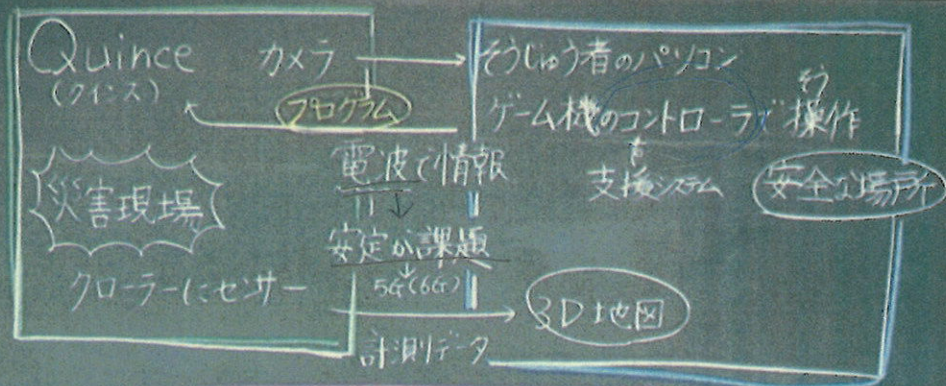 Quince
(クインス)
カメラ
プログラム
災害現場
クローラーにセンサー
電波で情報
安定が課題
5G(6G)
計測データ
そうじゅう者のパソコン
ゲーム機のコントローラで操作
そう
支援システム
安全な場所
3D地図